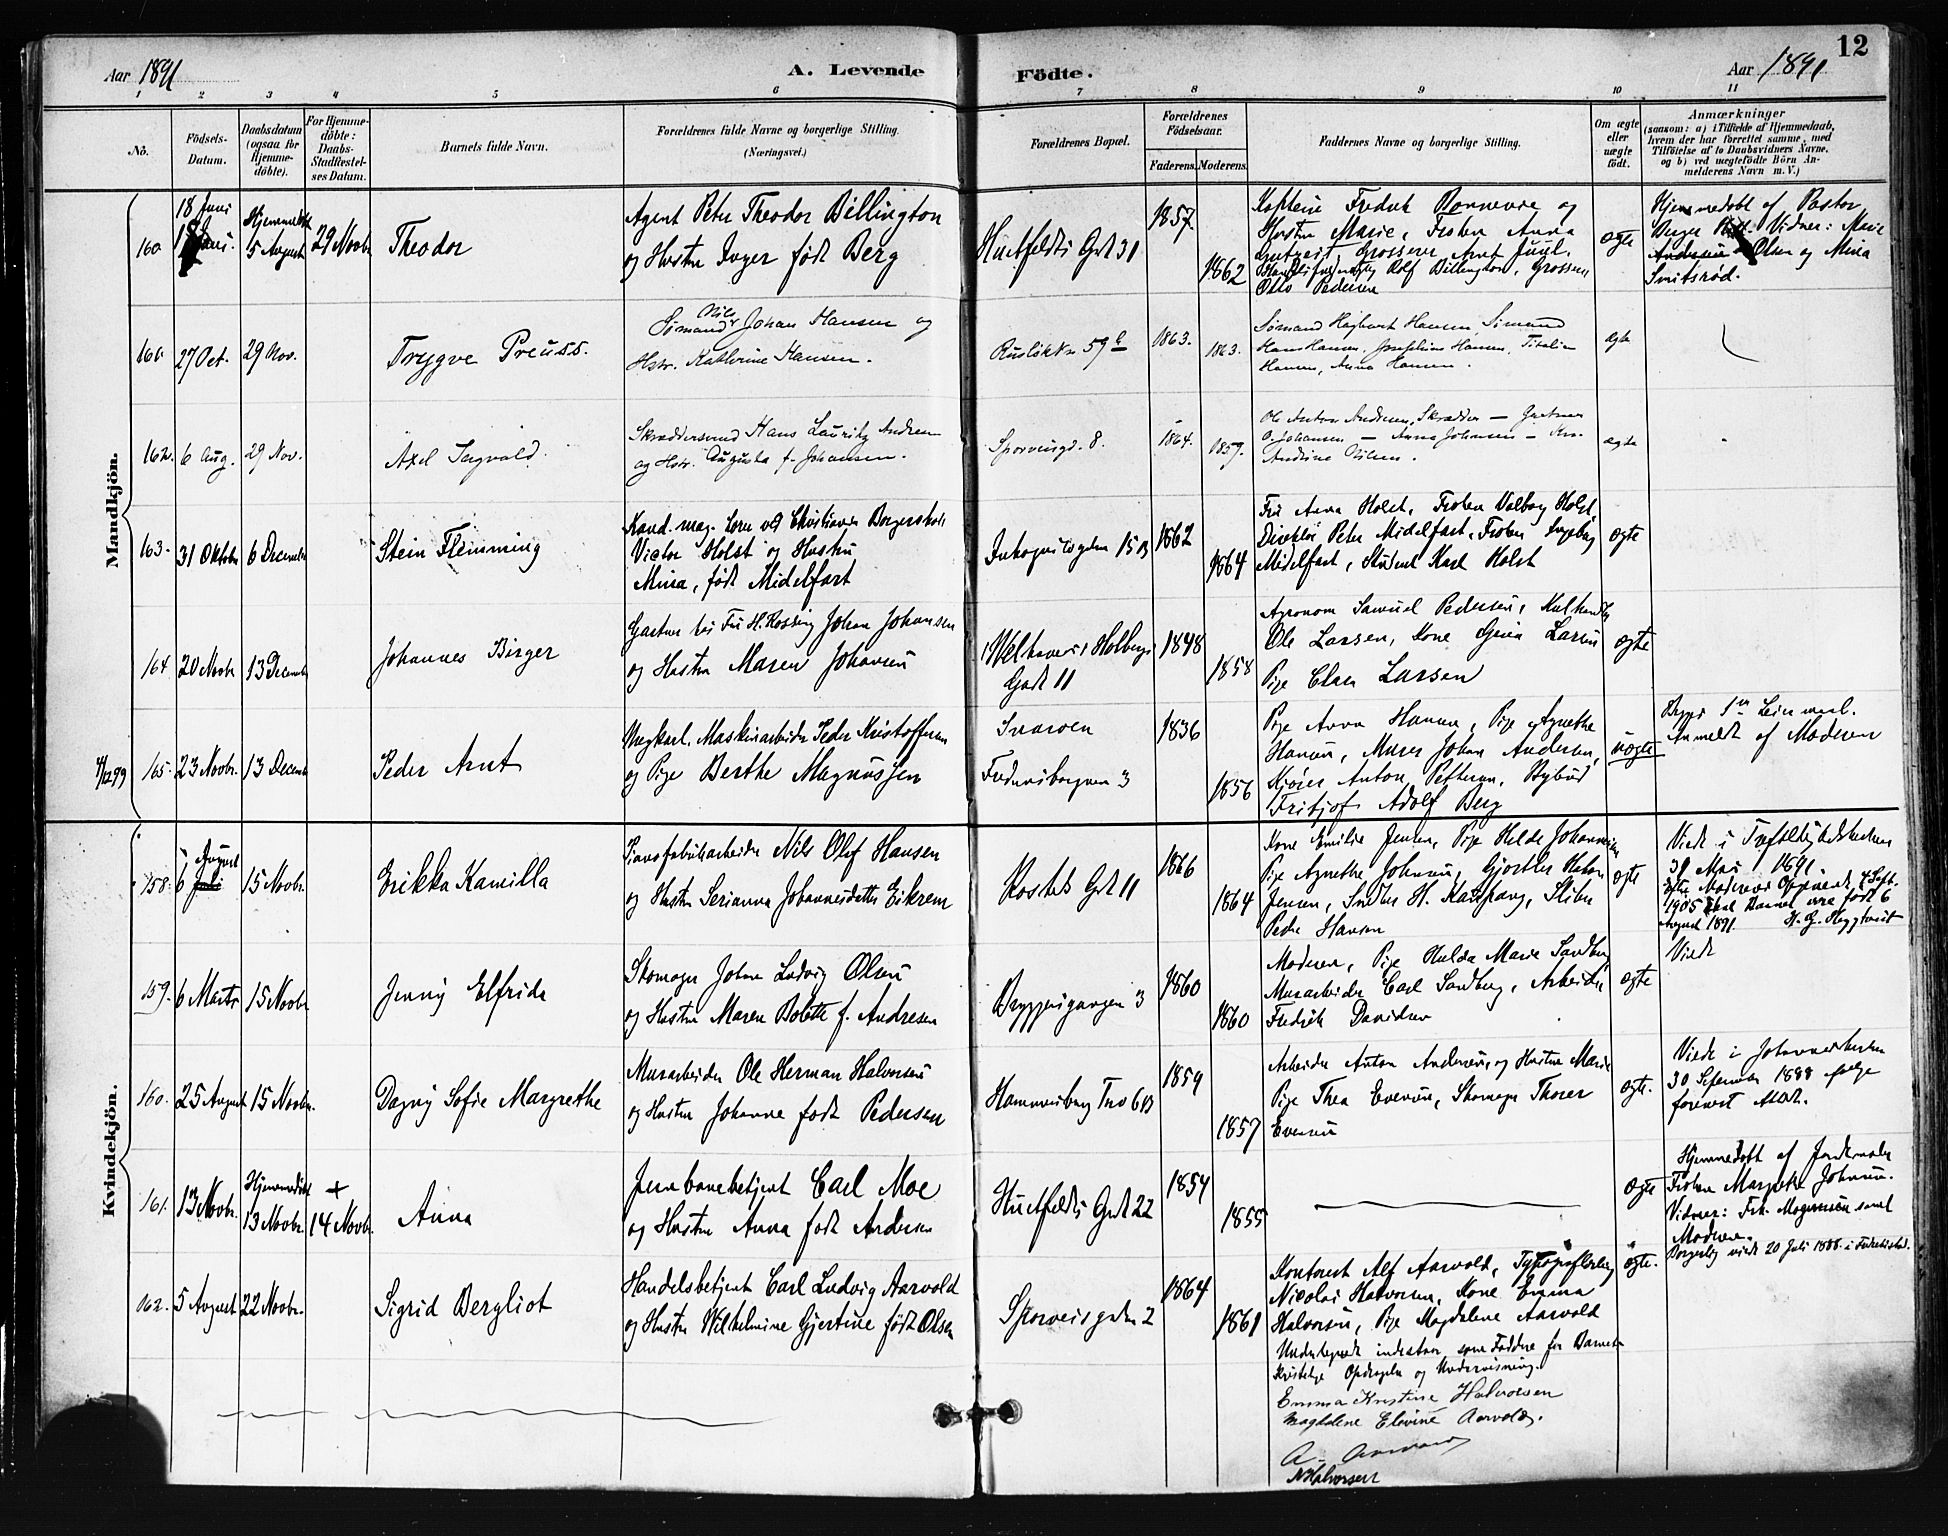 Aar 1891
A. Levende
Födte.
Aar 1891
12
1 2 3 4 5 6 7 8 9 10 11
No.
Födsels-
Datum.
Daabsdatum
(ogsaa for
Hjemme-
döbte).
For Hjemme-
döbte:
Daabs-
Stadfæstel-
ses Datum.
Barnets fulde Navn.
Forældrenes fulde Navne og borgerlige Stilling.
(Næringsvei.)
Forældrenes Bopæl.
Forældrenes
Födselsaar.
Faderens. Moderens.
Faddernes Navne og borgerlige Stilling.
Om ægte
eller
uægte
födt.
Anmærkninger
(saasom: a) i Tilfælde af Hjemmedaab,
hvem der har forrettet samme, med
Tilföielse af to Daabsvidners Navne,
og b) ved uægtefödte Börn An-
melderens Navn m. V.)
Mandkjön.
160
18 Juni
Hjemmedøbt
5 August
29 Novbr.
Theodor
Agent Peter Theodor Billington
og Hustru Inger født Berg
Huitfeldts Gade 31
1857
1862
Kaptein Fredrik og
Hustru Marie, Frøken Anna
Grosserer Arnt Juul,
Rolf Billington, Grosserer
Otto Pedersen
ægte
Hjemmedøbt af Pastor
Berger Vidner: Marie
Andersen Olsen og Mina
Smitsrød.
161
27 Oct.
29 Nov.
Trygve Preuss.
Nils
Sømand Johan Hansen og
Hstr. Kathrine Hansen.
59 b
1863.
1863.
Sømand Hansen, Sømand
Hans Hansen, Josephine Hansen,
Hansen, Anna Hansen.
ægte
162
6 Aug.
29 Nov.
Axel Sigvald.
Skræddersvend Hans Lauritz Andersen
og Hstr. Augusta f. Johansen.
Sporveisgd. 8.
1864.
1859.
Ole Anton Andersen, Skrædder —
O. Johansen — Anna Johansen —
Andrine Nilsen.
ægte
163
31 Oktober
6 December
Stein Flemming
Kand. mag. Lærer ved Christiania Borgerskole
Victor Holst og Hustru
Mina, født Midelfart
Inkognitogaden 15 B
1862
1864
Fru Anna Holst, Frøken Valborg Holst,
Direktør Peter Midelfart, Frøken Ingeborg
Midelfart, Student Karl Holst
ægte
164
20 Novbr.
13 December
Johannes Birger
Gartner hos Fru H. Johan Johansen
og Hustru Maren Johansen
Welhavens Holbergs
Gade 11
1848
1858
Agronom Samuel Pedersen, Kulhandler
Ole Larsen, Kone Gina Larsen
Pige Clara Larsen
ægte
4/12 99
165
23 Novbr.
13 Decemb.
Peder Arnt
Ungkarl, Maskinarbeider Peder Kristoffersen
og Pige Berthe Magnussen
Fredensborgveien 3
1836
1856
Pige Anna Hansen, Pige Agnethe
Hansen, Murer Johan Andersen,
Kjører Anton Pettersen, Bybud
Fritjof Adolf Berg
uægte
Anmeldt af Moderen
Kvindekjön.
158
August
6 Juli
15 Novbr.
Erikka Kamilla
Pianofabrikarbeider Nils Olof Hansen
og Hustru Serianna Johannesdatter Eikrem
Rosteds Gade 11
1866
1864
Kone Emilie Jensen, Pige Helde Johannesen
Pige Agnethe Johnsen, Gjørtler Hakon
Jensen, Snedker H. Kaupang, Sliber
Peder Hansen
ægte
Viede i Trefoldighedskirken
31 Mai 1891.
Efter Moderens Opgivende 7 Sept.
1905 skal Barnet være født 6
August 1891. H. G. Heggtveit
159.
6 Marts
15 Novbr.
Jenny Elfrida
Skomager Johan Ludvig Olsen
og Hustru Maren Bolette f. Andresen
Bryggerigangen 3
1860
1860
Moderen, Pige Hulda Marie Sandberg
Murarbeider Carl Sandberg, Arbeider
Fredrik Davidsen
ægte
Viede
160.
25 August
15 Novbr.
Dagny Sofie Margrethe
Murarbeider Ole Herman Halvorsen
og Hustru Johanne født Pedersen
Hammersborg Trv 6 B
1859
1857
Arbeider Anton Andersen og Hustru Marie
Pige Thea Evensen, Skomager Thorer
Evensen
ægte.
Viede i Johanneskirken
30 September 1888 ifølge
forevist Attest.
161.
13 Novbr.
Hjemmedøbt
13 Novbr.
+
14 Novbr.
Anna
Jernbanebetjent Carl Moe
og Hustru Anna født Andersen
Huitfeldts Gade 22
1854
1855
ægte
Hjemmedøbt af Jordemoder
Frøken Margrethe Johnsen.
Vidner: Frk. Mogensen samt
Moderen.
162.
5 August
22 Novbr.
Sigrid Bergliot
Handelsbetjent Carl Ludvig Aarvold
og Hustru Wilhelmine Gjertine født Olsen
Sporveisgaden 2
1864
1861
Kontorist Alf Aarvold, Typograflærling
Nicolai Halvorsen, Kone Emma
Halvorsen, Pige Magdalene Aarvold
Undertegnede indestaar som Faddere for Barnets
kristelige Opdragelse og Undervisning.
Emma Kristine Halvorsen
Magdalene Elevine Aarvold.
A. Aarvold
N Halvorsen
ægte.
Borgerlig viede 20 Juli 1888 i Fredrikstad.